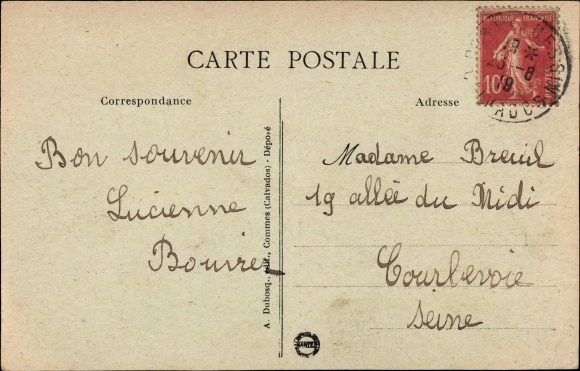 CARTE POSTALE
Correspondance
Adresse
RÉPUBLIQUE FRANÇAISE
10
Bon souvenir
Lucienne
A. Dubosq., édit., Commes (Calvados) - Déposé
Madame Breuil
19 allée du Midi
Courbevoie
Seine